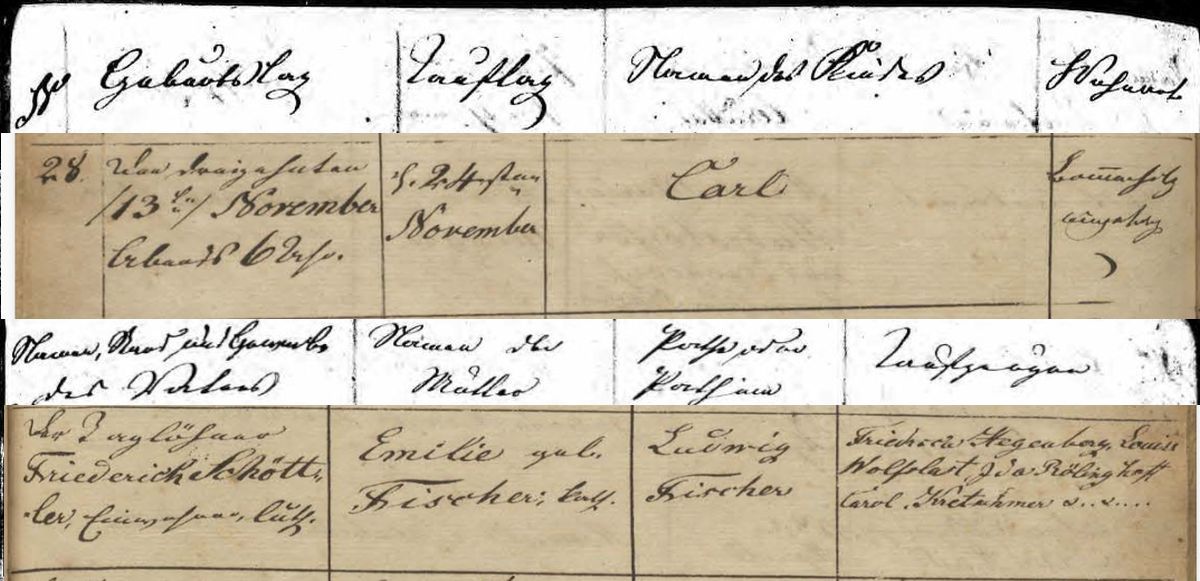 No Geburtstag Tauftag Namen des Kindes Wohnort
28. Den dreizehnten d. 24sten Carl
/13ten/ November November
Abends 6 Uhr.
Namen, Stand und Gewerbe Namen der Pathe oder Taufzeugen
des Vaters Mutter Pathinn
Der Taglöhner Emilie geb. Ludwig Friedrich Hegenberg, Louis
Friederich Schött- Fischer, kath. Fischer Wolfslast Ida Rölinghoff
ler, Einwohner, luth. Carol. Kretschmer